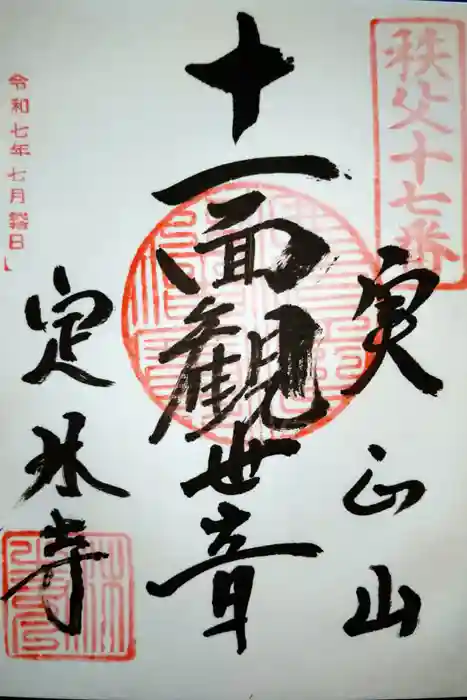 秩父十七番
実正山
十一面観世音
令和七年七月
定林寺